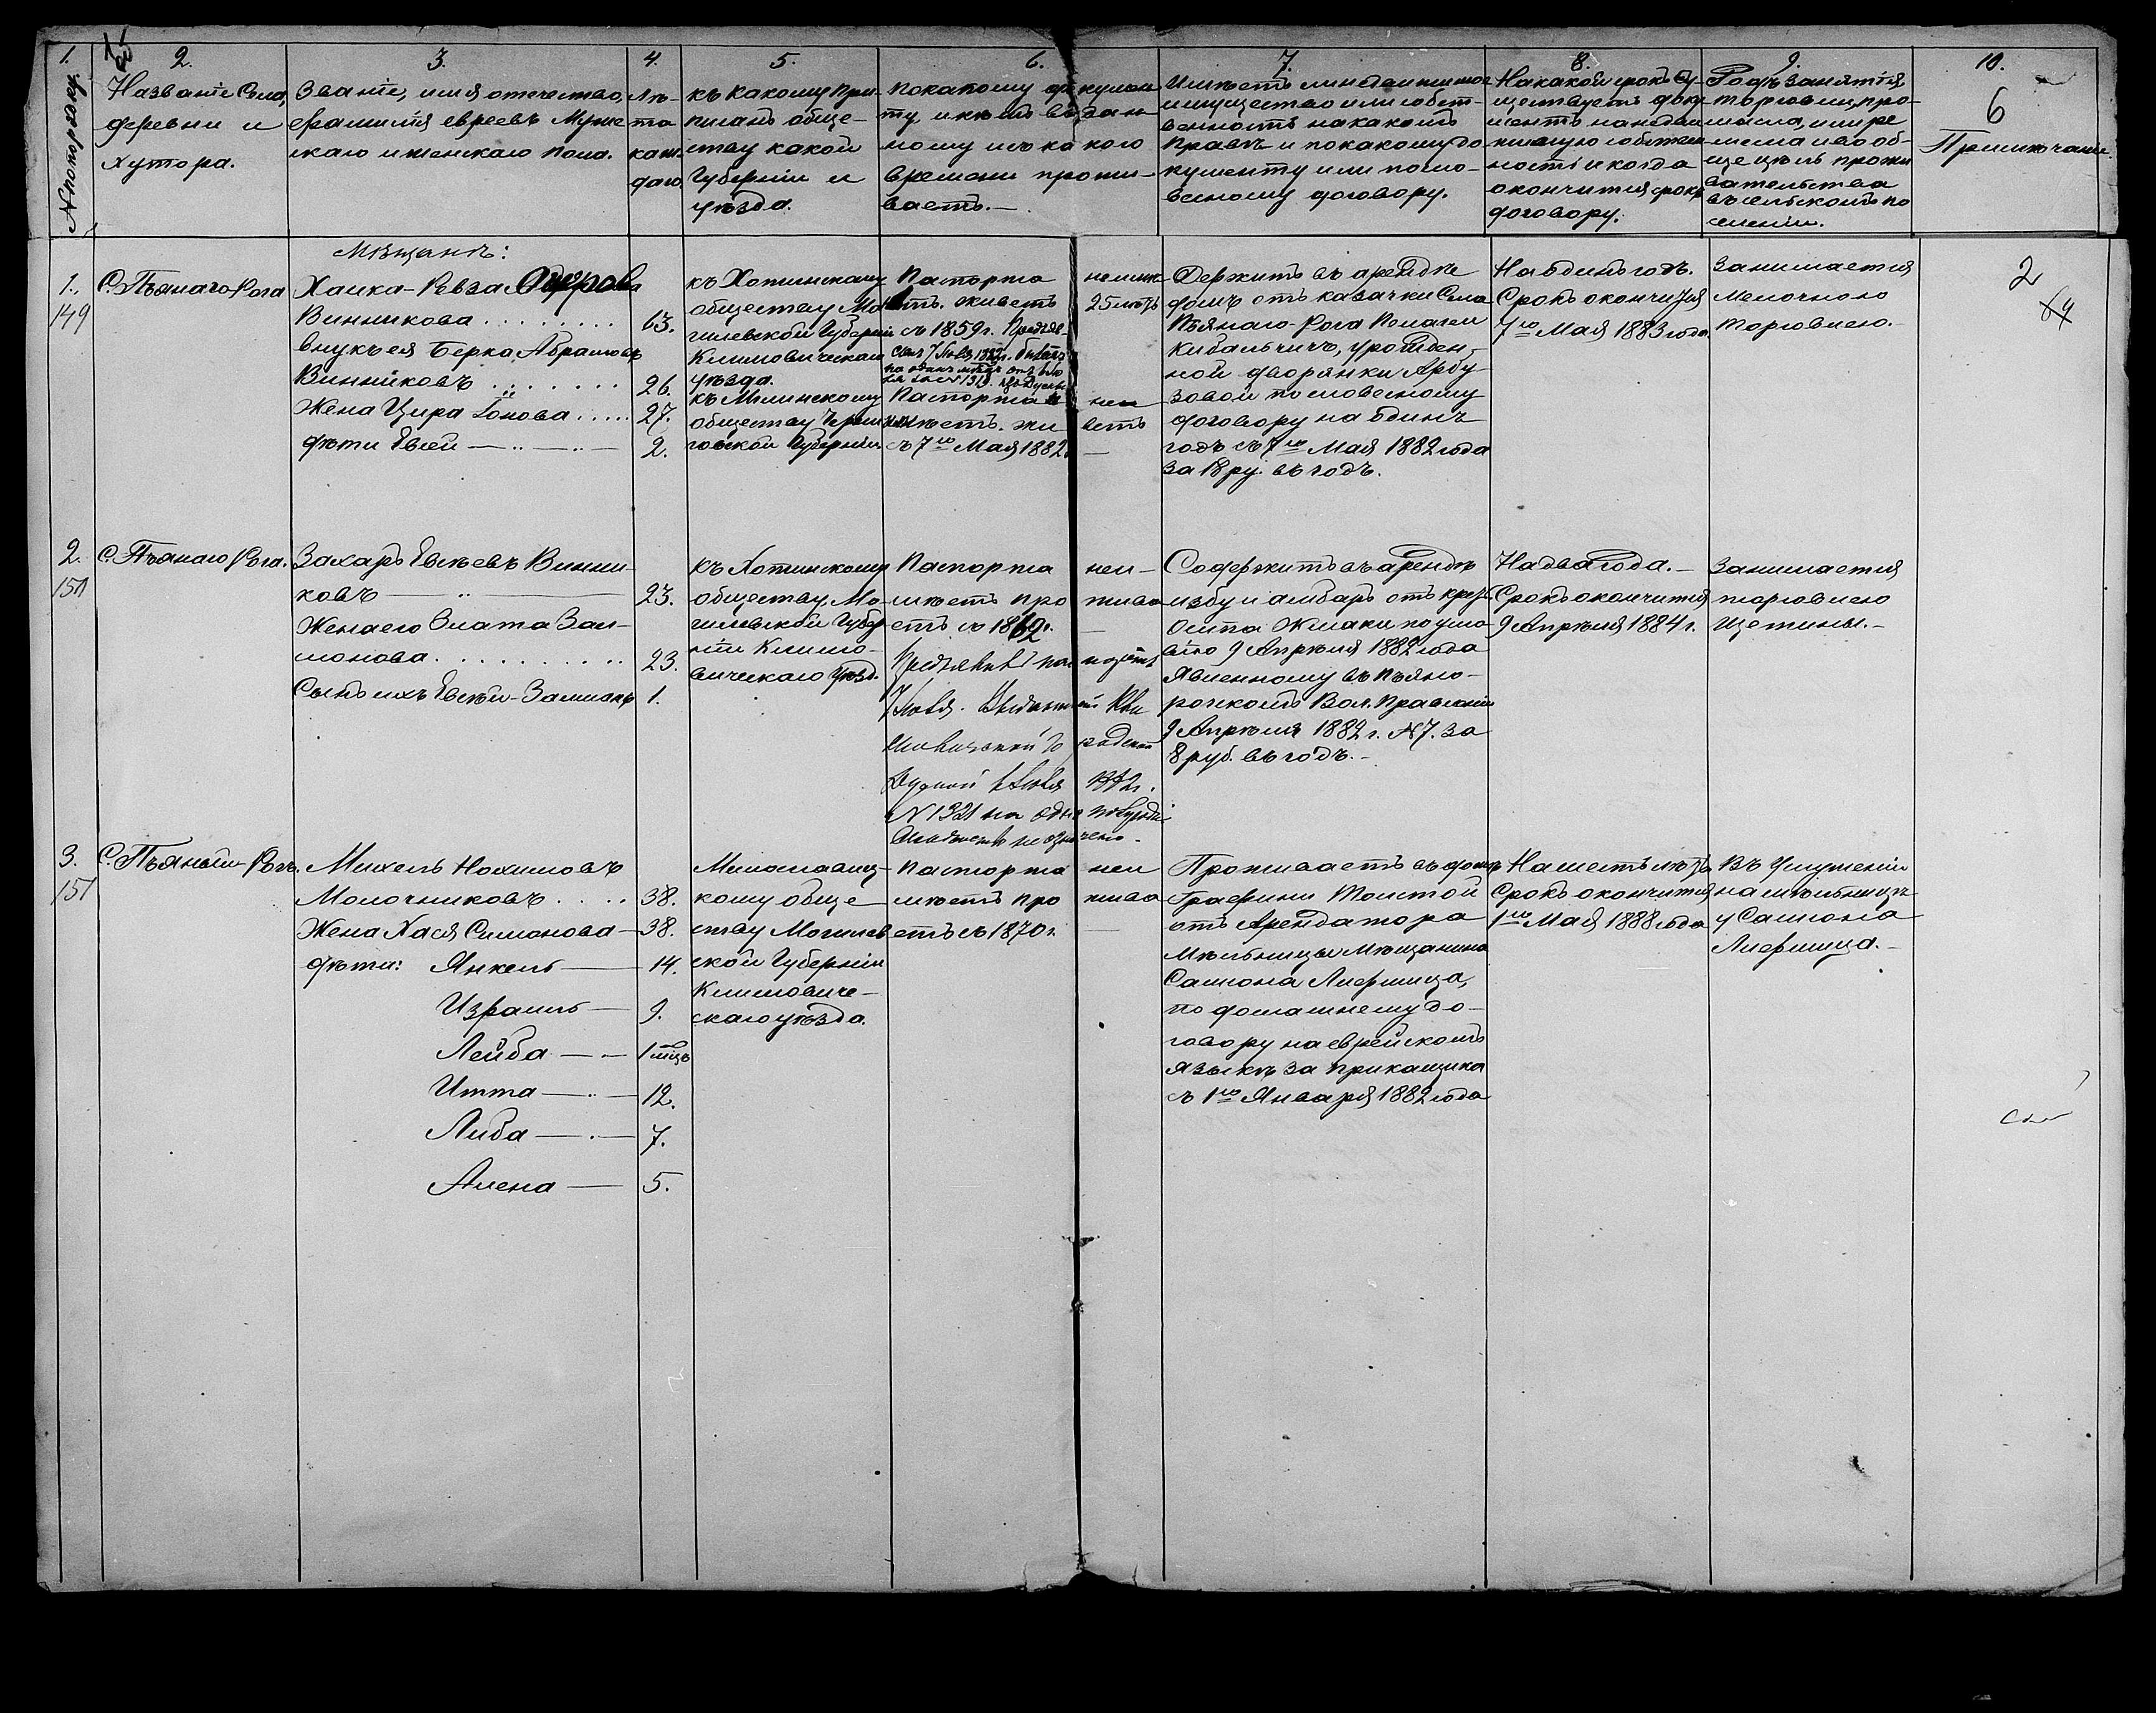 1.
№ по порядку.
2.
Названіе Села,
деревни и
хутора.
3.
Званіе, имя отечество,
фамилія евреевъ Муже
скаго и женскаго пола.
4.
Лѣ-
та
каж-
даго
5.
къ какому при-
писанъ обще-
ству какой
Губерніи и
уѣзда.
6.
по какому докумен
ту икѣмъ выдан-
ному и съ ка кого
времяни прожи-
ваетъ.—
7.
Имѣетъ ли недвижимое
имущество или собст-
венность на какомъ
правѣ и по какому до
кументу или по сло-
весному договору.
8.
На какой срокъ су-
ществуетъ доку
ментъ на недви
жимую собствен
ность и когда
окончится срокъ
договору.
9.
Родъ занятія
торговли, про-
мысла, или ре
месла и вооб-
ще цѣль прожи
вательства
въ сельскомъ по
селеніи.
10.
6
Примѣчаніе.
Мѣщанъ:
1.
149
С. Пьянаго-Рога
Хаика-Ревза
Винникова . . . . . . . . 63.
внукъ ея Берко Абрамовъ
Винниковъ . . . . . . . 26.
Жена Цира Іонова . . . . . 27.
дѣти Евсей — 2.
къ Хотимскому
обществу Мо
гилевской Губерніи
Климовическаго
уѣзда.
къ Мглинскому
обществу Черни
говской Губерніи
Паспорта неимѣ
етъ. живетъ 25 лѣтъ
съ 1859 г.
Паспорта не
имѣетъ. жи ветъ
съ 7го Мая 1882
Держитъ въ арендѣ
домъ отъ казачки Села
Пьянаго-Рога Пелагеи
Кибальчичъ, урожден-
ной дворянки Арбу-
зовой по словесному
договору на одинъ
годъ съ 7го Мая 1882 года
за 18 ру. въ годъ.
На одинъ годъ.
Срокъ окончится
7го Мая 1883 года.
Занимается
Мелочною
торговлею.—
2
64
2.
150
С. Пьянаго Рога.
Захаръ Евсѣевъ Винни-
ковъ — 23.
Жена его Злата Зал-
монова . . . . . . . . . . 23.
Сынъ ихъ Евсѣй-Залманъ 1.
къ Хотимскому
обществу Мо-
гилевской Губер
ніи Климо-
вическаго Уѣзд.
Паспорта неи-
мѣетъ про жива
етъ съ 1862 г.
Содержитъ въ арендѣ
избу и амбаръ отъ крест.
Осипа Жмаки по усло
вію 9 Апрѣля 1882 года
Явленному въ Пьяно-
рогскомъ Вол. Правленіи
9 Апрѣля 1882 г. № 7. за
8 руб. въ годъ.—
На два года.—
Срокъ окончится
9 Апрѣля 1884 г.
Занимается
торговлею
Щетины.—
3.
151
С. Пьяный-Рогъ.
Михель Нохимовъ
Молочниковъ . . . . 38.
Жена Хася Симонова — 38.
дѣти: Янкель — 14.
Израиль — 9.
Лейба — 1 мѣц.
Итта — 12.
Либа — 7.
Алена — 5.
Милославиц-
кому обще
ству Могилев
ской Губерніи
Климовиче-
скаго уѣзда.
Паспорта неи
мѣетъ про жива
етъ съ 1870 г.
Проживаетъ въ домѣ
Графини Толстой
отъ Арендатора
Мѣльницы Мѣщанина
Самона Лифшица,
по домашнему до-
говору на еврейскомъ
языкѣ за прикащика
съ 1го Января 1882 года
На шесть лѣтъ
Срокъ окончится
1го Мая 1888 года
Въ Услуженіи
на мѣльницѣ
у Самона
Лифшица.—